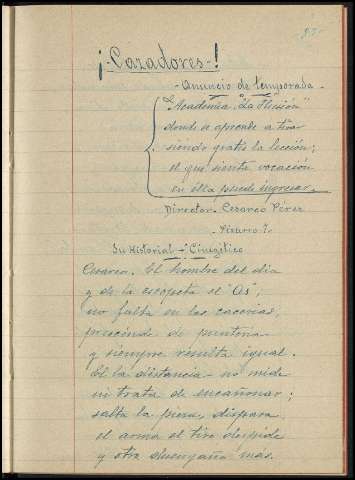 ¡-Cazadores-!
-Anuncio de temporada-
"Academia "La Ilusión"
donde se aprende a tirar
siendo gratis la lección;
el que sienta vocación
en ella puede ingresar.
Director-Cesareo Pérez
-Pizarro 7.
Su Historial-Cinegético
Cesareo. El hombre del dia
y de la escopeta el "As",
no falta en las cacerias,
prescinde de punteria
y siempre resulta igual.
El la distancia no mide
ni trata de encañonar;
salta la pieza, dispara
el arma el tiro despide
y otro desengaño mas.